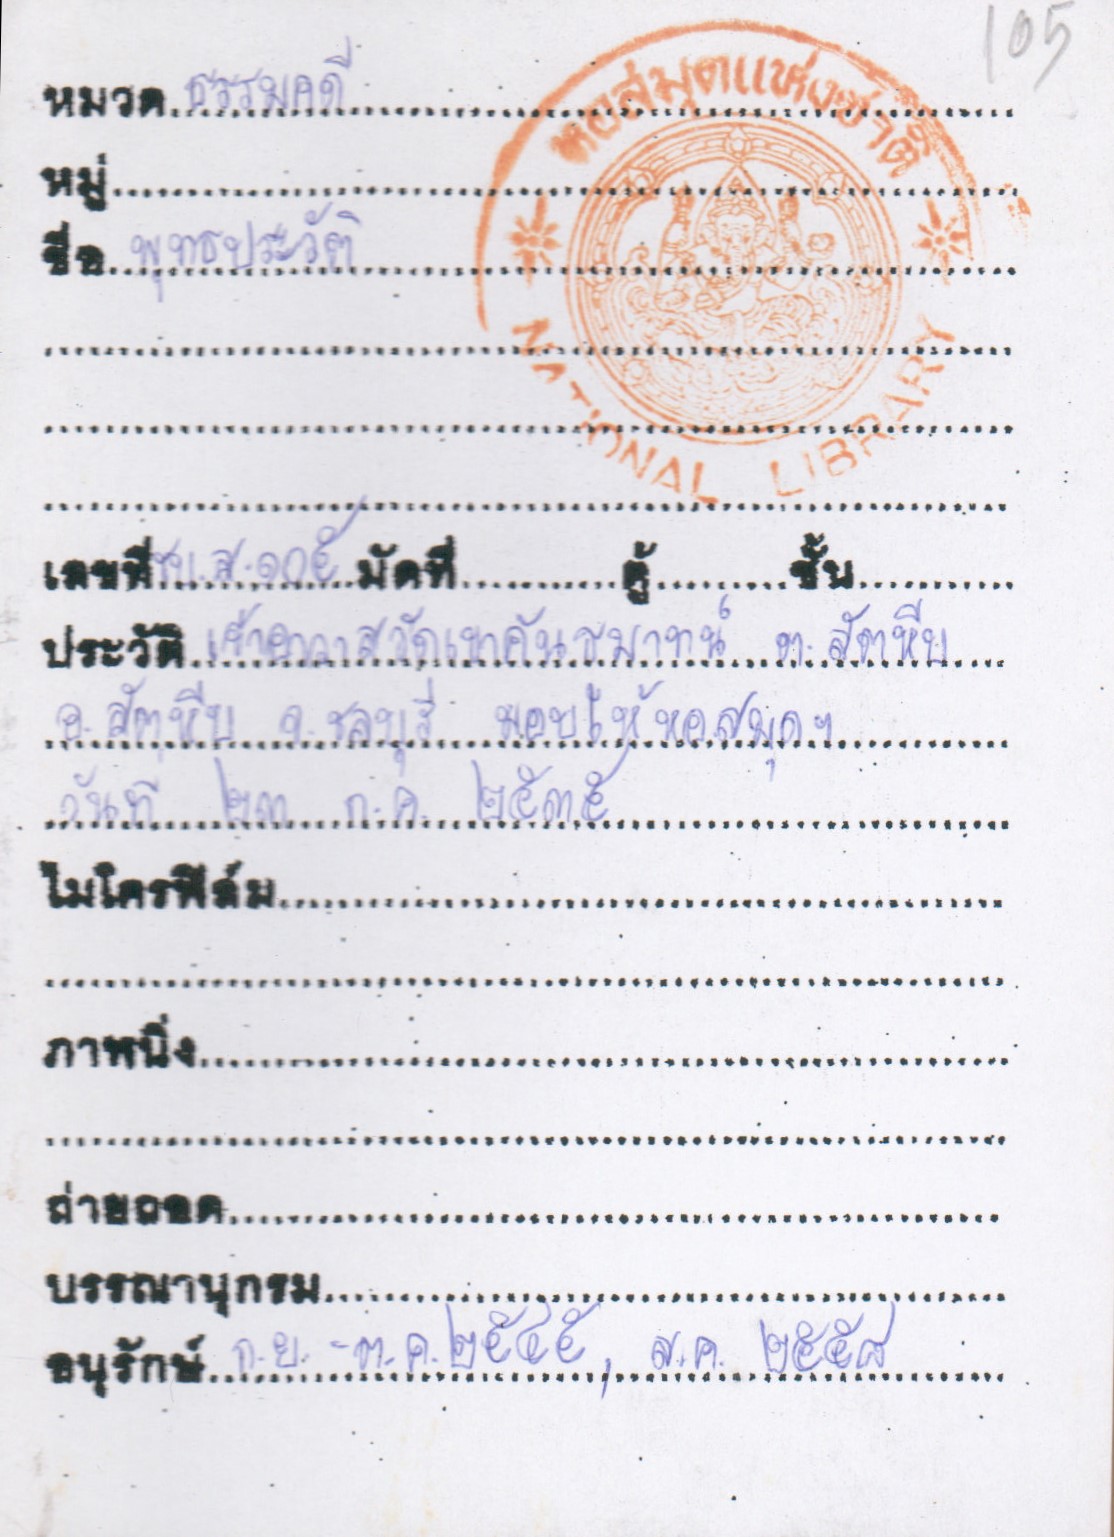 105
หอสมุดแห่งชาติ
NATIONAL LIBRARY
หมวด ธรรมคดี
หมู่
ชื่อ พุทธประวัติ
เลขที่ ชบ.ส.๑๐๕ มัดที่ ตู้ ชั้น
ประวัติ เจ้าอาวาสวัดเขาคันธมาทน์ ต.สัตหีบ
อ.สัตหีบ จ.ชลบุรี มอบให้หอสมุดฯ
วันที่ ๒๓ ก.ค. ๒๕๓๕
ไมโครฟิล์ม
ภาพนิ่ง
ถ่ายถอด
บรรณานุกรม
อนุรักษ์ ก.ย. - ต.ค. ๒๕๔๕, ส.ค. ๒๕๕๘